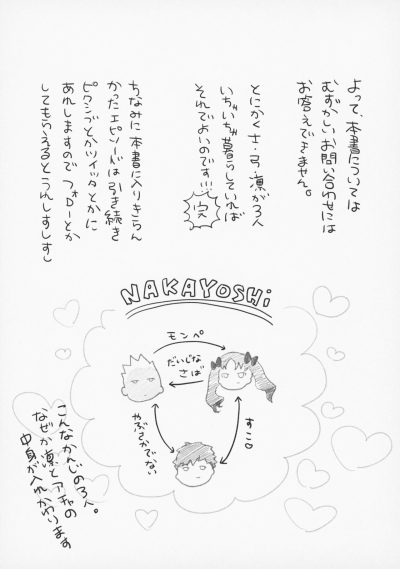 よって、本書については
むずかしいお問い合わせには
お答えできません。
とにかくさ・弓・凛が3人
いちゃいちゃ暮らしていれば
それでよいのです!!! 完
ちなみに本書に入りきらん
かったエピソードは引き続き
ピクシブとかツイッタとかに
あれしますので フォローとか
してもらえるとうれしすしすし
NAKAYOSHi
モンペ
だいじな
さば
すこ
やぶさかでない
こんなかんじの3人。
なぜか凛とアチャの
中身が入れかわります